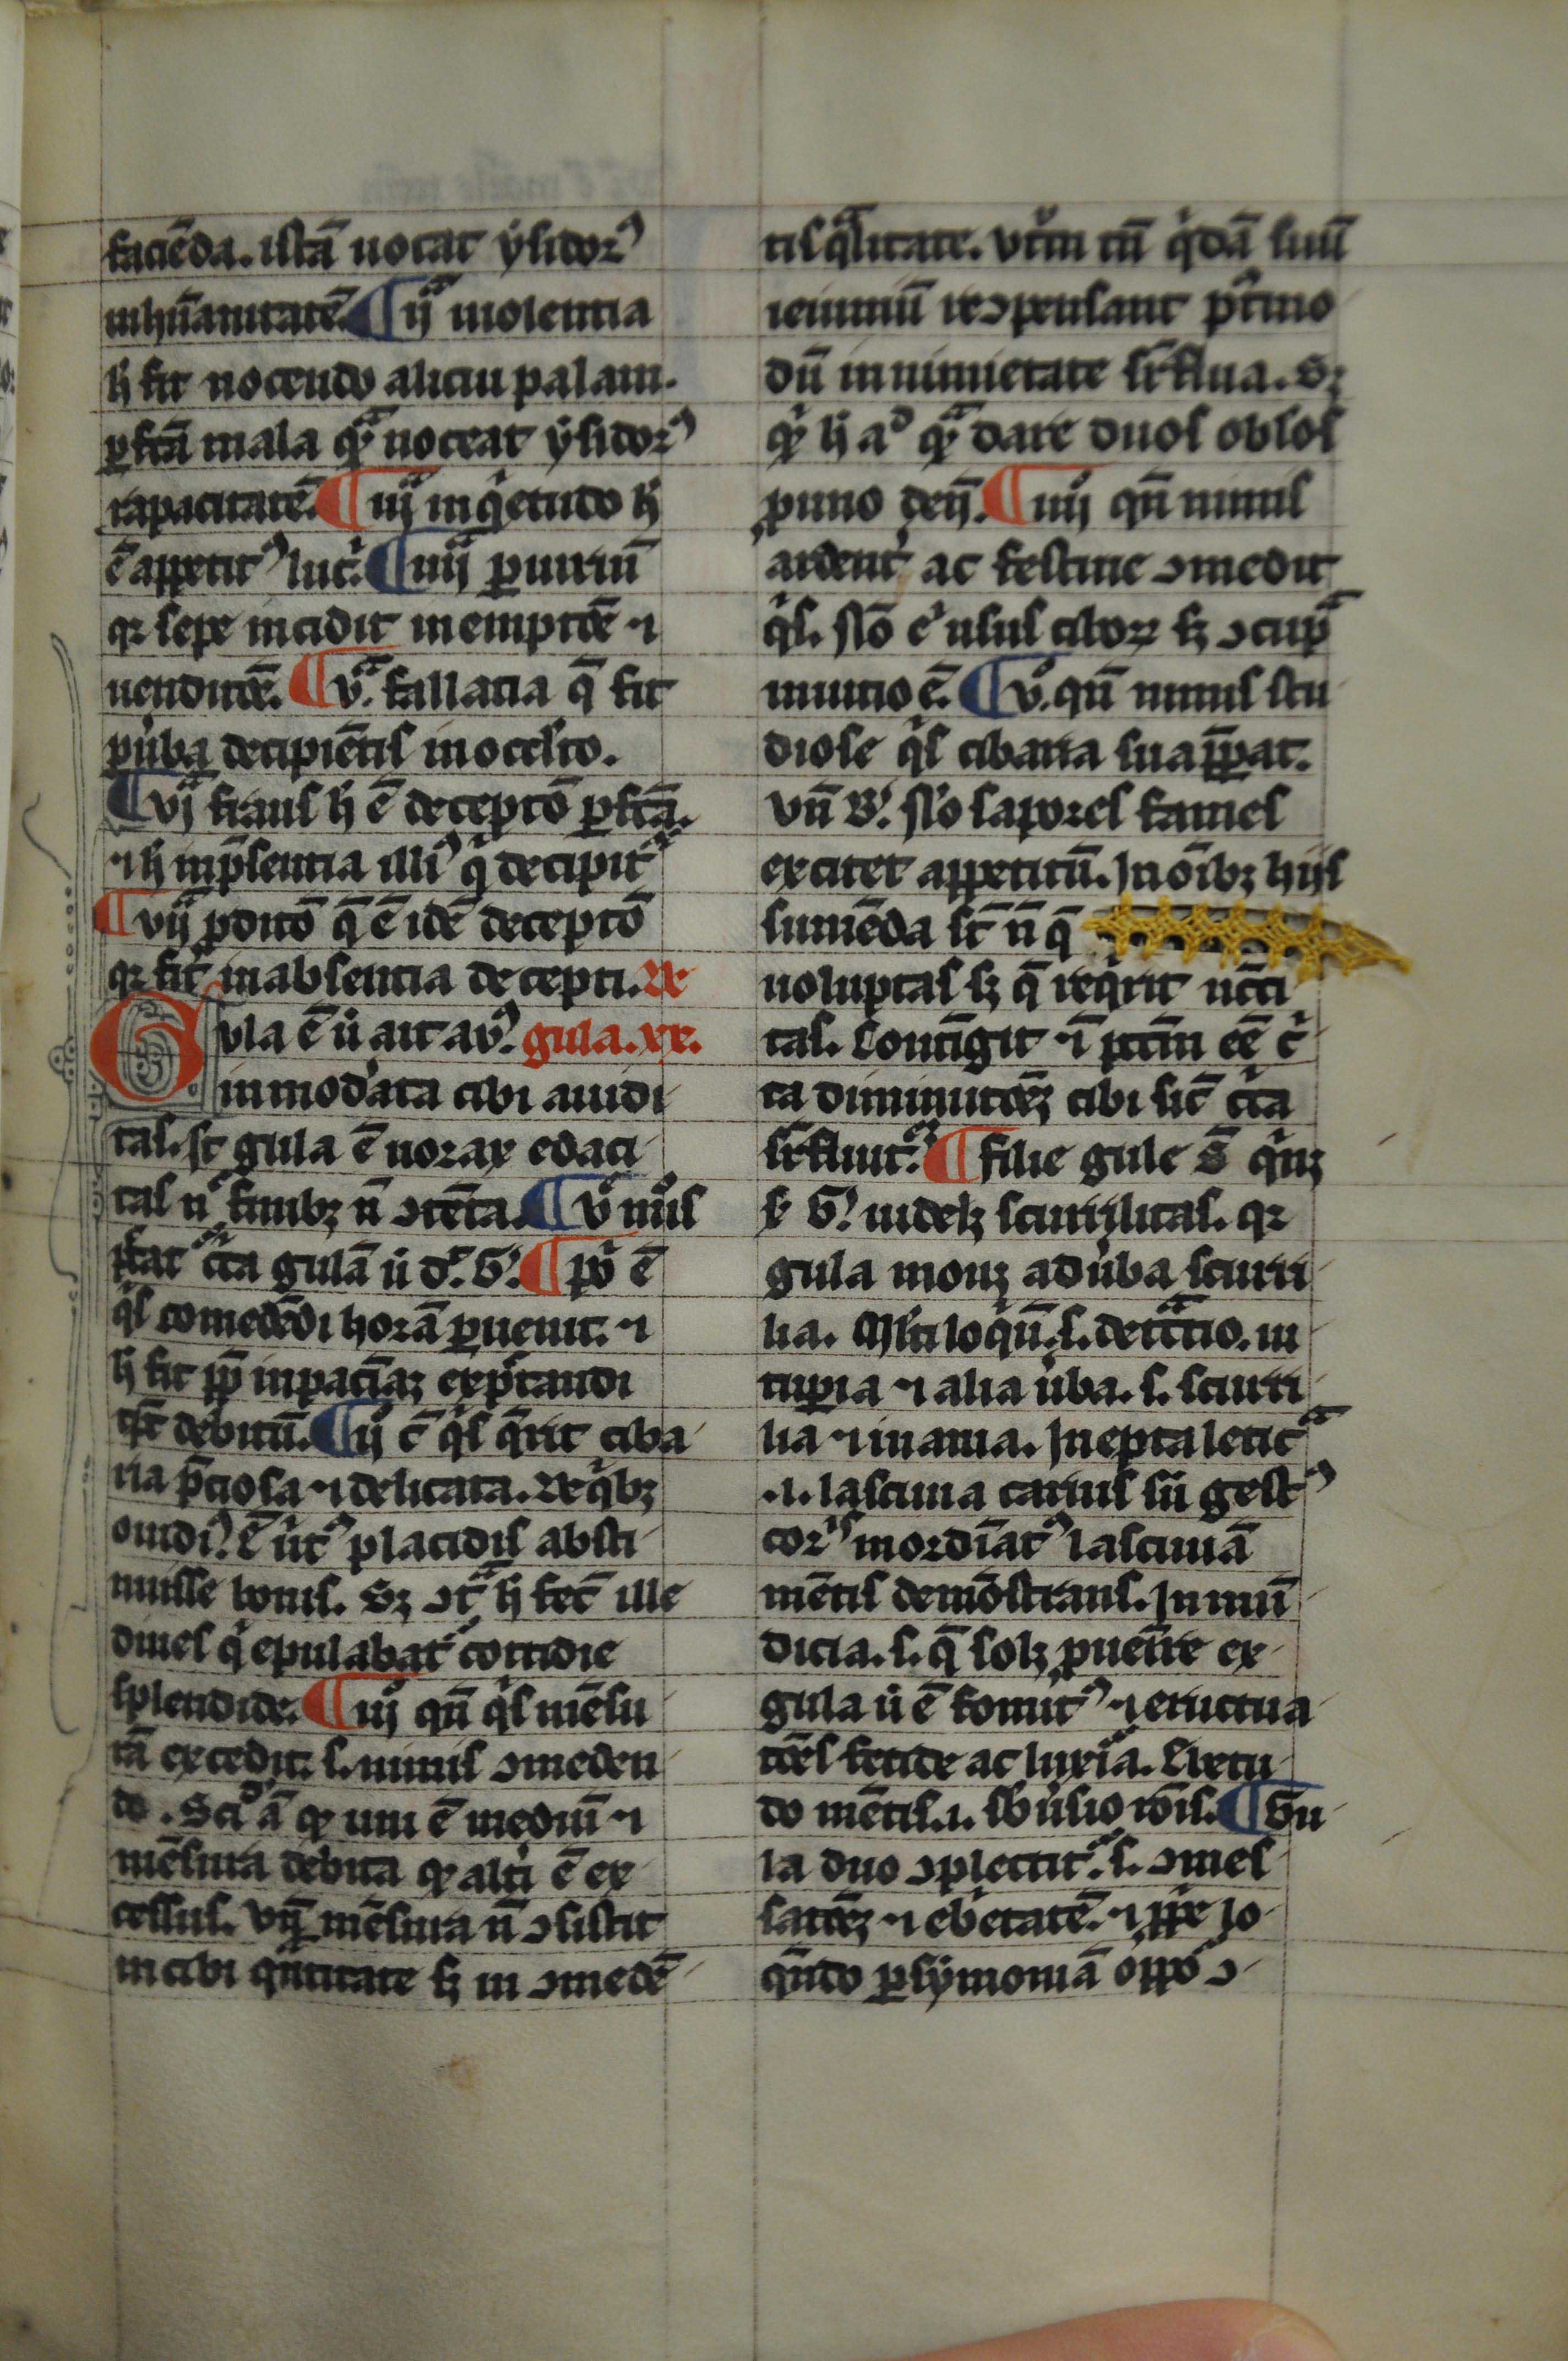 faciēda. istā uocat ẏsidorꝰ
inhūanitatē. ¶ ijᵃ uiolentia
h̄ fit nocendo alicui palam.
ꝑ ſcā mala qᷓ noceat ẏsidorꝰ
rapacitatē. ¶ iijᵃ inqͥetudo h̄
ē appetitꝰ lucͥ. ¶ iiijᵃ ꝑiuriū
qꝛ sepe incidit in emptōe ⁊
uenditōe. ¶ vᵃ. fallacia q̄ fit
ꝑ u̾ba decipiētis in occlto.
¶ vjᵃ fraus h̄ ē deceptō ꝑ ſcā.
⁊ h̄ in p̄sentia illiꝰ qͥ decipit᷑
¶ vijᵃ ꝓditō q̄ ē idē deceptō
qꝛ fit in absentia decepti. De
Gula ē ū ait aw̾. gula. xx.
inmod̾ata cibi auidi
tas. sꝫ gula ē uorax edaci
tas n̾ finibꝫ n̄ ↄtēta. ¶ vͦ mͦis
pctat᷑ cͥca gulā ū d̾. G̾. ¶ pͦ ē
qͥs comedēdi horā p̄uenit. ⁊
h̄ fit ꝓp̄ inpaciaꝫ expctandi
tp̄r debitū. ¶ ijͦ c̄ qͥs q̄rit ciba
ria p̄ciosa ⁊ delicata. De qͥbꝫ
ouidiꝰ. ē u̾tꝰ placidis absti
nuisse bonis. Sꝫ ↄtᵃ h̄ fec̄ ille
diues qͥ epulabat᷑ cottidie
splendide. ¶ iijͦ qn̄ qͥs mēsu
rā excedit. s. nimis ↄmeden
do. Sciᵒ ā qꝛ uni ē mediū ⁊
mēsura debita qꝛ alt̾i ē ex
cessus. Vn̄ mēsura n̄ ↄsistit
in cibi qᷓntitate sꝫ in ↄmedē
tis qᷓlitate. Vtͫ tn̄ qͥdā suū
ieiuniū reↄpensant p̄timo
dū in nimietate sr̄flua. Sꝫ
qꝛ h̄ aᵒ qᷓ dare duos obłos
ꝓ uno den̄. ¶ iiijͦ qn̄ nimis
ardent̾ ac festine ↄmedit
qͥs. n̄ ō ē usus ciborꝝ sꝫ ↄcupᵃ
minutio ē. ¶ vͦ. qn̄ nimis stu
diose qͥs cibaria sua p̄parat.
Vn̄ B̾. n̄ō sapores fames
excitet appetitū. In ōibꝫ hijs
sumēda st̄ n̄ q̄
uoluptas sꝫ q̄ reqͥrit ncc̄i
tas. Contīgit ⁊̄ pctm̄ eē cͥ
ca diminutōeꝫ cibi sic̄ cͥca
sr̄fluit᷑. ¶ filie gule s̄ qͥnqꝫ
s̄ G̾. uidelꝫ scurrilitas. qꝛ
gula mouꝫ ad u̾ba scurri
lia. Ml̄tiloqͥū. s. detᵃctio. ui
tuꝑia ⁊ alia u̾ba. s. scurri
lia ⁊ inania. Inepta leticᵃ
.i. lasciuia carnis siū gestꝰ
corꝑis inordīatꝰ lasciuiā
mētis demōstrans. Inmū
dicia. s. q̄ solꝫ ꝓuenire ex
gula ū ē uomitꝰ ⁊ eructua
tōes fetide ac luxͥa. Ebetu
do mētis. i. sb̄u̾sio rōis. ¶ Gu
la duo ↄplectit᷑. s. ↄmes
satōeꝫ ⁊ ebrietatē. ⁊ ꝓp̄e lo
qn̄do ꝑsẏmoniā oppoᵗ ↄ